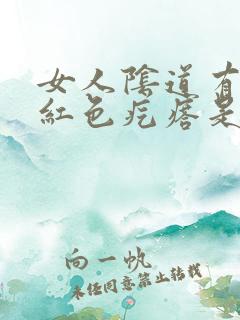 女人陰道有
紅色疙瘩是
向一帆
未经同意禁止转载